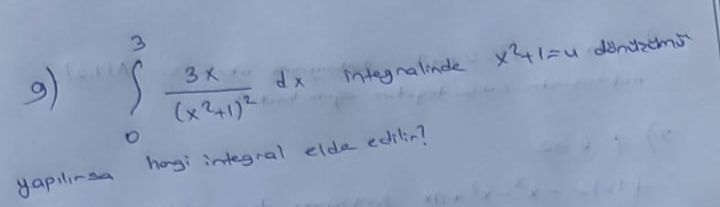 9) ∫₀³ 3x/(x²+1)² dx integralinde x²+1=u dönüşümü
yapılırsa hangi integral elde edilir?